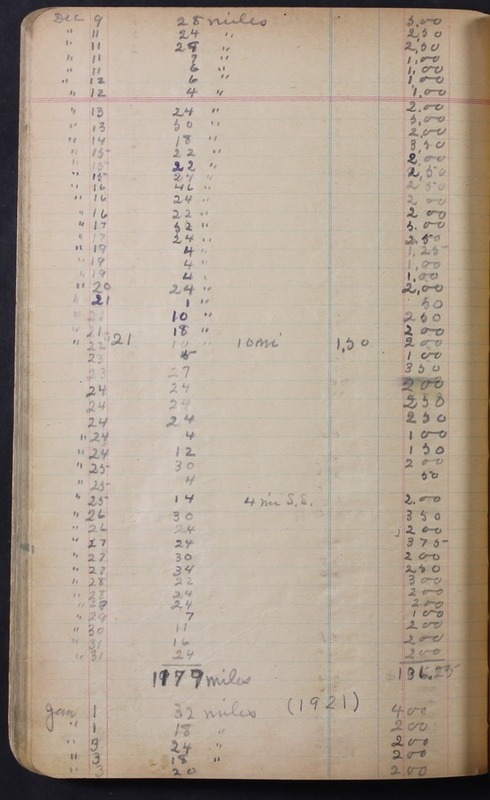 Dec 9 28 miles 3.00
" 11 24 " 2,50
" 11 28 " 2,50
" 11 7 " 1.00
" 11 6 " 1.00
" 12 6 " 1.00
" 12 4 " 1.00
" 13 24 " 2.00
" 13 50 " 5.00
" 14 18 " 2.00
" 15 22 " 3,50
" 15 22 " 2.00
" 15 27 " 2,50
" 16 46 " 2 50
" 16 24 " 2 00
" 16 22 " 2 00
" 17 52 " 5.00
" 17 24 " 2 50
" 19 4 " 1.25
" 19 4 " 1.00
" 19 4 " 1.00
" 20 24 " 2,00
" 21 1 " 50
" 21 10 " 2 50
" 21 18 " 2 00
" 22 " 21 10 " 10 mi 1,50 2 00
23 5 1 00
23 27 3 50
24 24 2 00
24 24 2 50
24 24 2 50
" 24 4 1 00
" 24 12 1 50
" 25 30 2 00
" 25 4 50
" 25 14 4 mi S.S. 2.00
" 26 30 3 50
" 26 24 2 00
" 27 24 3 75
" 27 30 2 00
" 27 34 2 50
" 28 22 3 00
" 28 24 2 00
" 29 24 2 00
" 29 7 1 00
" 30 11 2 00
" 31 16 2 00
" 31 24 2 00
1979 miles 136.25
Jan 1 32 miles (1921) 4 00
" 1 18 " 2 00
" 3 24 " 2 00
" 3 18 " 2 00
" 3 20 2 00